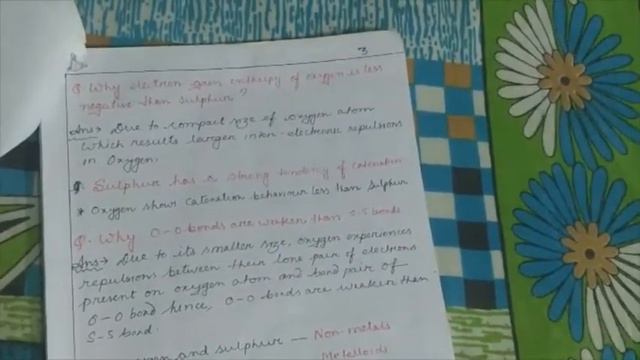 3
Q. Why electron gain enthalpy of oxygen is less
negative than sulphur?
Ans→ Due to compact size of oxygen atom
which results larger inter-electronic repulsions
in oxygen.
Sulphur has a strong tendency of catenation
* Oxygen show catenation behaviour less than sulphur
Q. Why O-O bonds are weaker than S-S bonds
Ans→ Due to its smaller size, oxygen experiences
repulsions between their lone pair of electrons
present on oxygen atom and bond pair of
O-O bond hence, O-O bonds are weaker than
S-S bond.
and sulphur — Non-metals
Metalloids